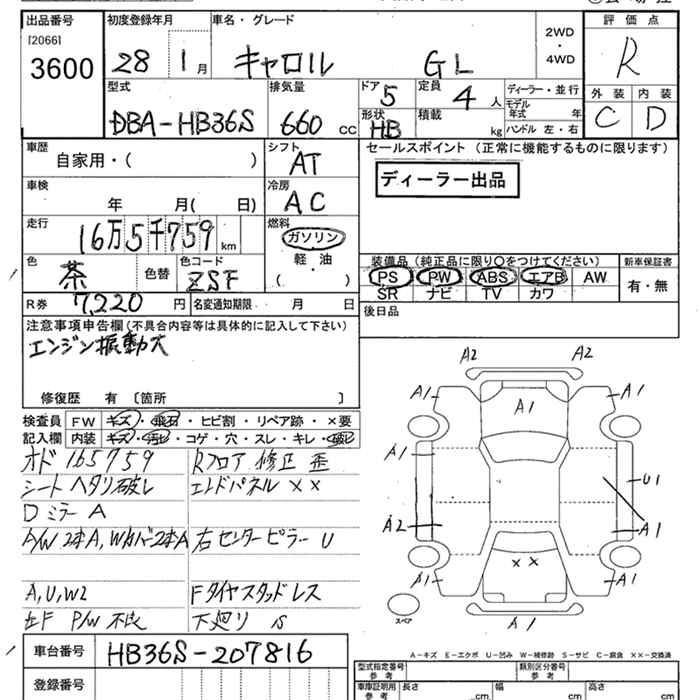 出品番号 初度登録年月 車名・グレード 2WD・4WD 評価点
[2066] 3600 28 1月 キャロル GL R
型式 排気量 ドア 5 定員 4人 ディーラー・並行 外装 内装
DBA-HB36S 660 CC 形状 HB 積載 kg モデル年式 年 ハンドル 左・右 C D
車歴 シフト セールスポイント (正常に機能するものに限ります)
自家用・( ) AT
車検 冷房 ディーラー出品
年 月( 日) AC
走行 燃料
16万5千759 km ガソリン
軽油
( )
色 色コード 装備品 (純正品に限り○をつけてください) 新車保証書
茶 色替 ZSF PS PW ABS エアB AW 有・無
SR ナビ TV カワ
R券 7,220 円 名変通知期限 月 日 後日品
注意事項申告欄(不具合内容等は具体的に記入して下さい)
エンジン振動大
修復歴 有 〔箇所 〕
検査員 FW キズ・飛石・ヒビ割・リペア跡・×要
記入欄 内装 キズ・汚ビ・コゲ・穴・スレ・キレ・破レ
オド 165759 Rフロア 修正 歪
シート ヘタリ破レ エンドパネル ××
Dミラー A
A/W 2本A, Wカバー2本A 右センターピラー U
A,U,W2 Fタイヤスタッドレス
左F P/W 不良 下廻り S
車台番号 HB36S-207816
登録番号
A2 A2
A1 A1 A1
A1 U1
A2 A1
××
A1 A1
スペア A1
A-キズ E-エクボ U-凹み W-補修跡 S-サビ C-腐食 ××-交換済
型式指定番号 参考 類別区分番号 参考
車庫証明用 参考 長さ cm 幅 cm 高さ cm